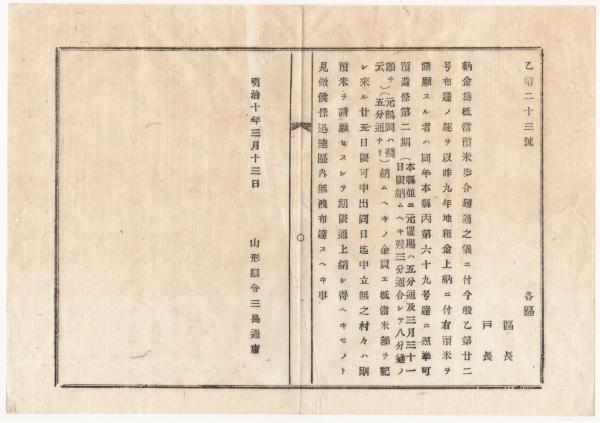 乙第二十三號
各區
區長
戸長
納金爲抵當預米歩合趣過之儀ニ付今般乙第廿二
号布達ノ趣ヲ以昨九年地租金上納ニ付右預米ヲ
請願スル者ハ同年本縣丙第六十九号達ニ照準可
預置條第二期(本縣並ニ元置賜ハ五分通及三月三十一
日限納ムヘキ殘三分通合シテ八分通ノ
額ヲ)(元鶴岡ハ殘
五分通ナリ)納ムヘキノ金員エ抵當米額ヲ記
云
シ來ル廿五日限可申出同日迄申立無之村々ハ則
預米ヲ請願セスシテ期限通上納シ得ヘキモノト
見做候條迅速區内無洩布達スヘキ事
明治十年三月十三日
山形縣令三島通庸